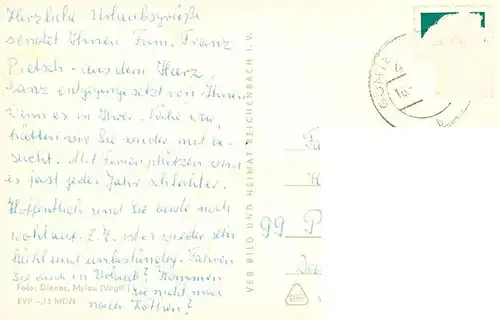 Herzliche Urlaubsgrüße
sendet Ihnen Fam. Franz
Pietsch - aus dem Harz,
ganz entgegengesetzt von Ihnen
Wenn es in Ihrer Nähe wär
hätten wir Sie wieder mit be-
sucht. Mit Ferienplätzen wird
es fast jedes Jahr schlechter.
Hoffentlich sind Sie beide noch
wohlauf. Z. Z. ist es wieder sehr
kühl und unbeständig. Fahren
Sie auch in Urlaub? Kommen
Sie nicht mal
nach
Foto: Diener, Mylau (Vogtl.)
EVP -,15 MDN
VEB BILD UND HEIMAT REICHENBACH I. V.
GÜNTE
99 P